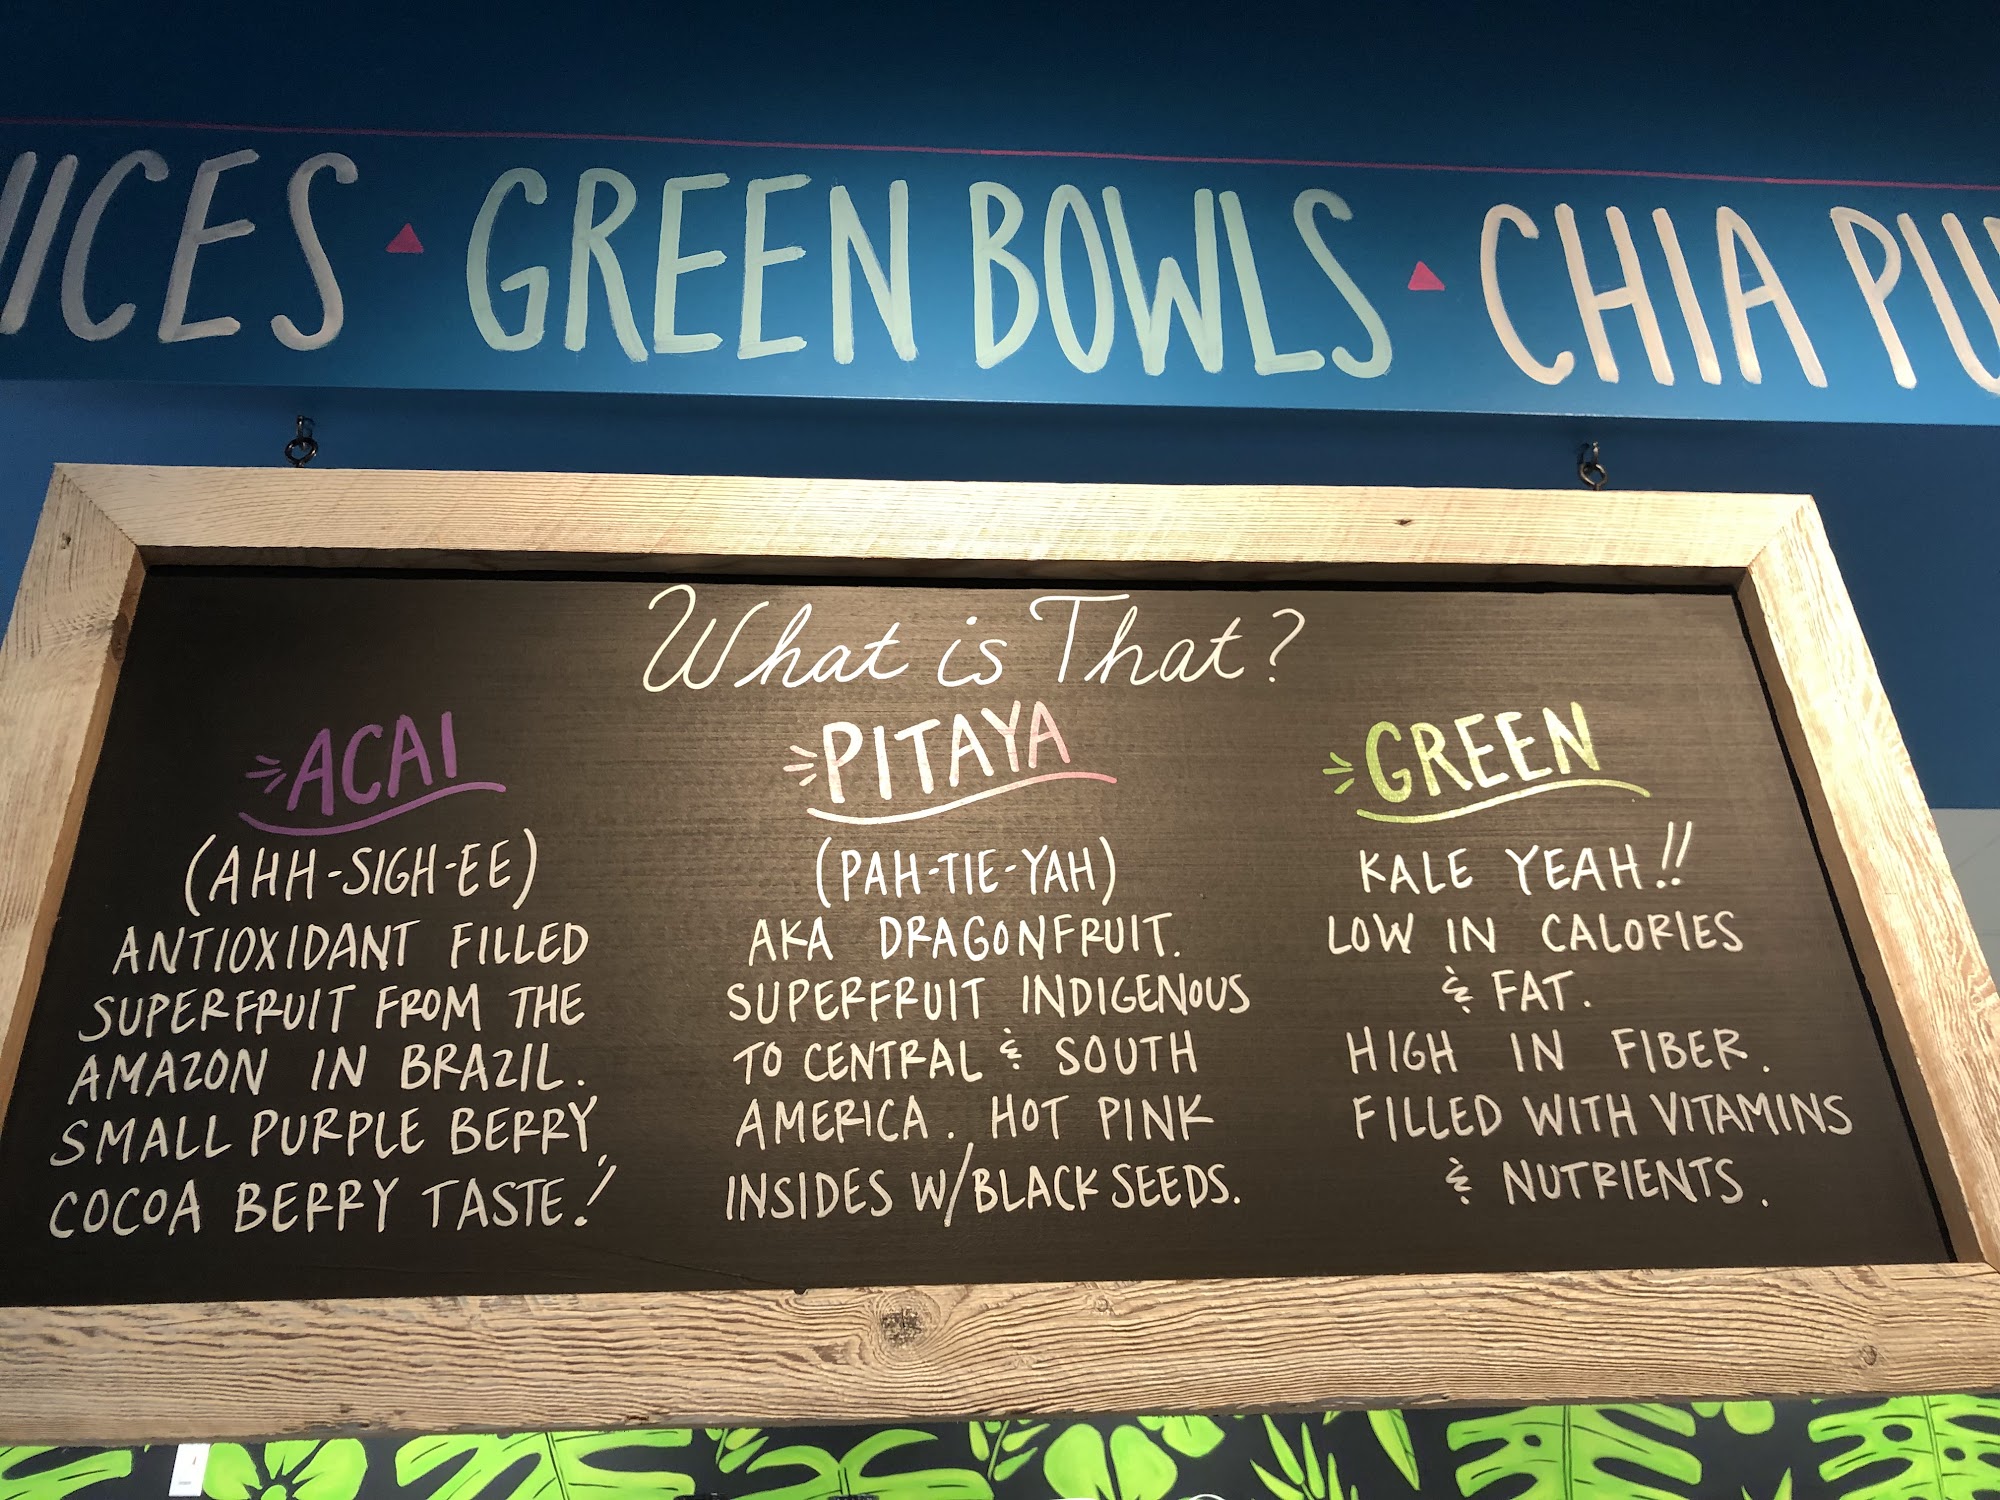 GREEN BOWLS CHIA
What is That?
ACAI
(AHH-SIGH-EE)
ANTIOXIDANT FILLED
SUPERFRUIT FROM THE
AMAZON IN BRAZIL.
SMALL PURPLE BERRY,
COCOA BERRY TASTE!
PITAYA
(PAH-TIE-YAH)
AKA DRAGONFRUIT.
SUPERFRUIT INDIGENOUS
TO CENTRAL & SOUTH
AMERICA. HOT PINK
INSIDES W/BLACK SEEDS.
GREEN
KALE YEAH!!
LOW IN CALORIES
& FAT.
HIGH IN FIBER.
FILLED WITH VITAMINS
& NUTRIENTS.